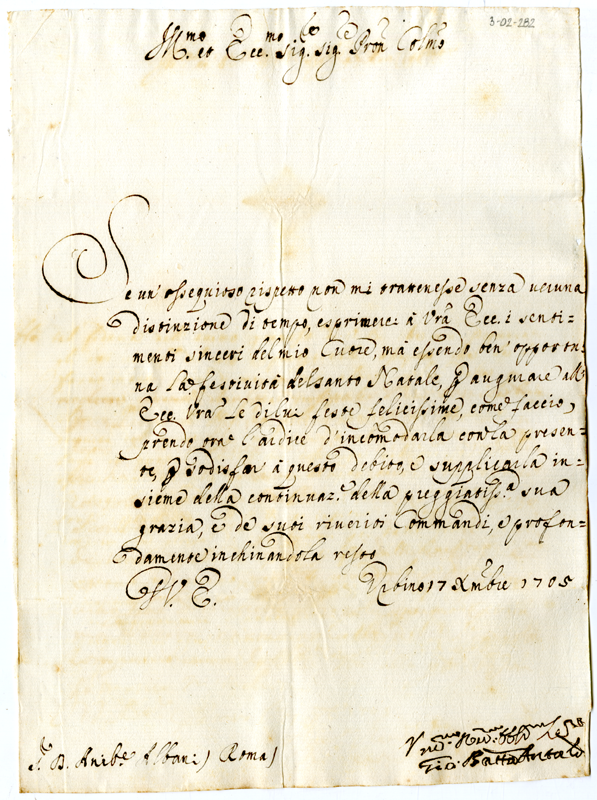 3-02-282
Ill.mo et Ecc.mo Sig.re Sig.re Pron Colmo
Se un ossequioso rispetto non mi trattenesse senza veruna
distinzione di tempo, esprimerei à Vrã Ecc. i senti-
menti sinceri del mio Cuore, mà essendo ben opportu-
na la festività del Santo Natale, p augurare all'
Ecc. Vrã le di lui feste felicissime, come faccio,
prendo ora l'ardire d'incomodarla con la presen-
te, p sodisfar à questo debito, e supplicarla in-
sieme della continuaz.e della preggiatiss.a sua
grazia, e de suoi riveriti Commandi, e profon-
damente inchinandola resto
D V. E.
Urbino 17 Xmbre 1705
D. Anibe Albani) Roma)
Gio. Batta